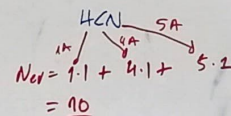 HCN
1A 4A 5A
Nev = 1.1 + 4.1 + 5.1
= 10